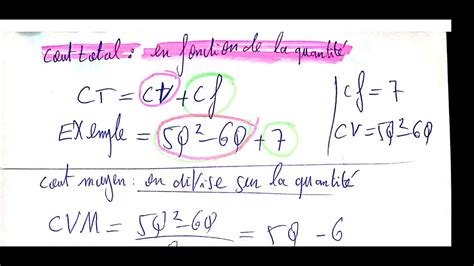 cout total : en fonction de la quantité
CT = CV + Cf
Cf = 7
EXemple = 5Q² - 6Q + 7
CV = 5Q² - 6Q
cout moyen : on divise sur la quantité
CVM = 5Q² - 6Q = 5Q - 6